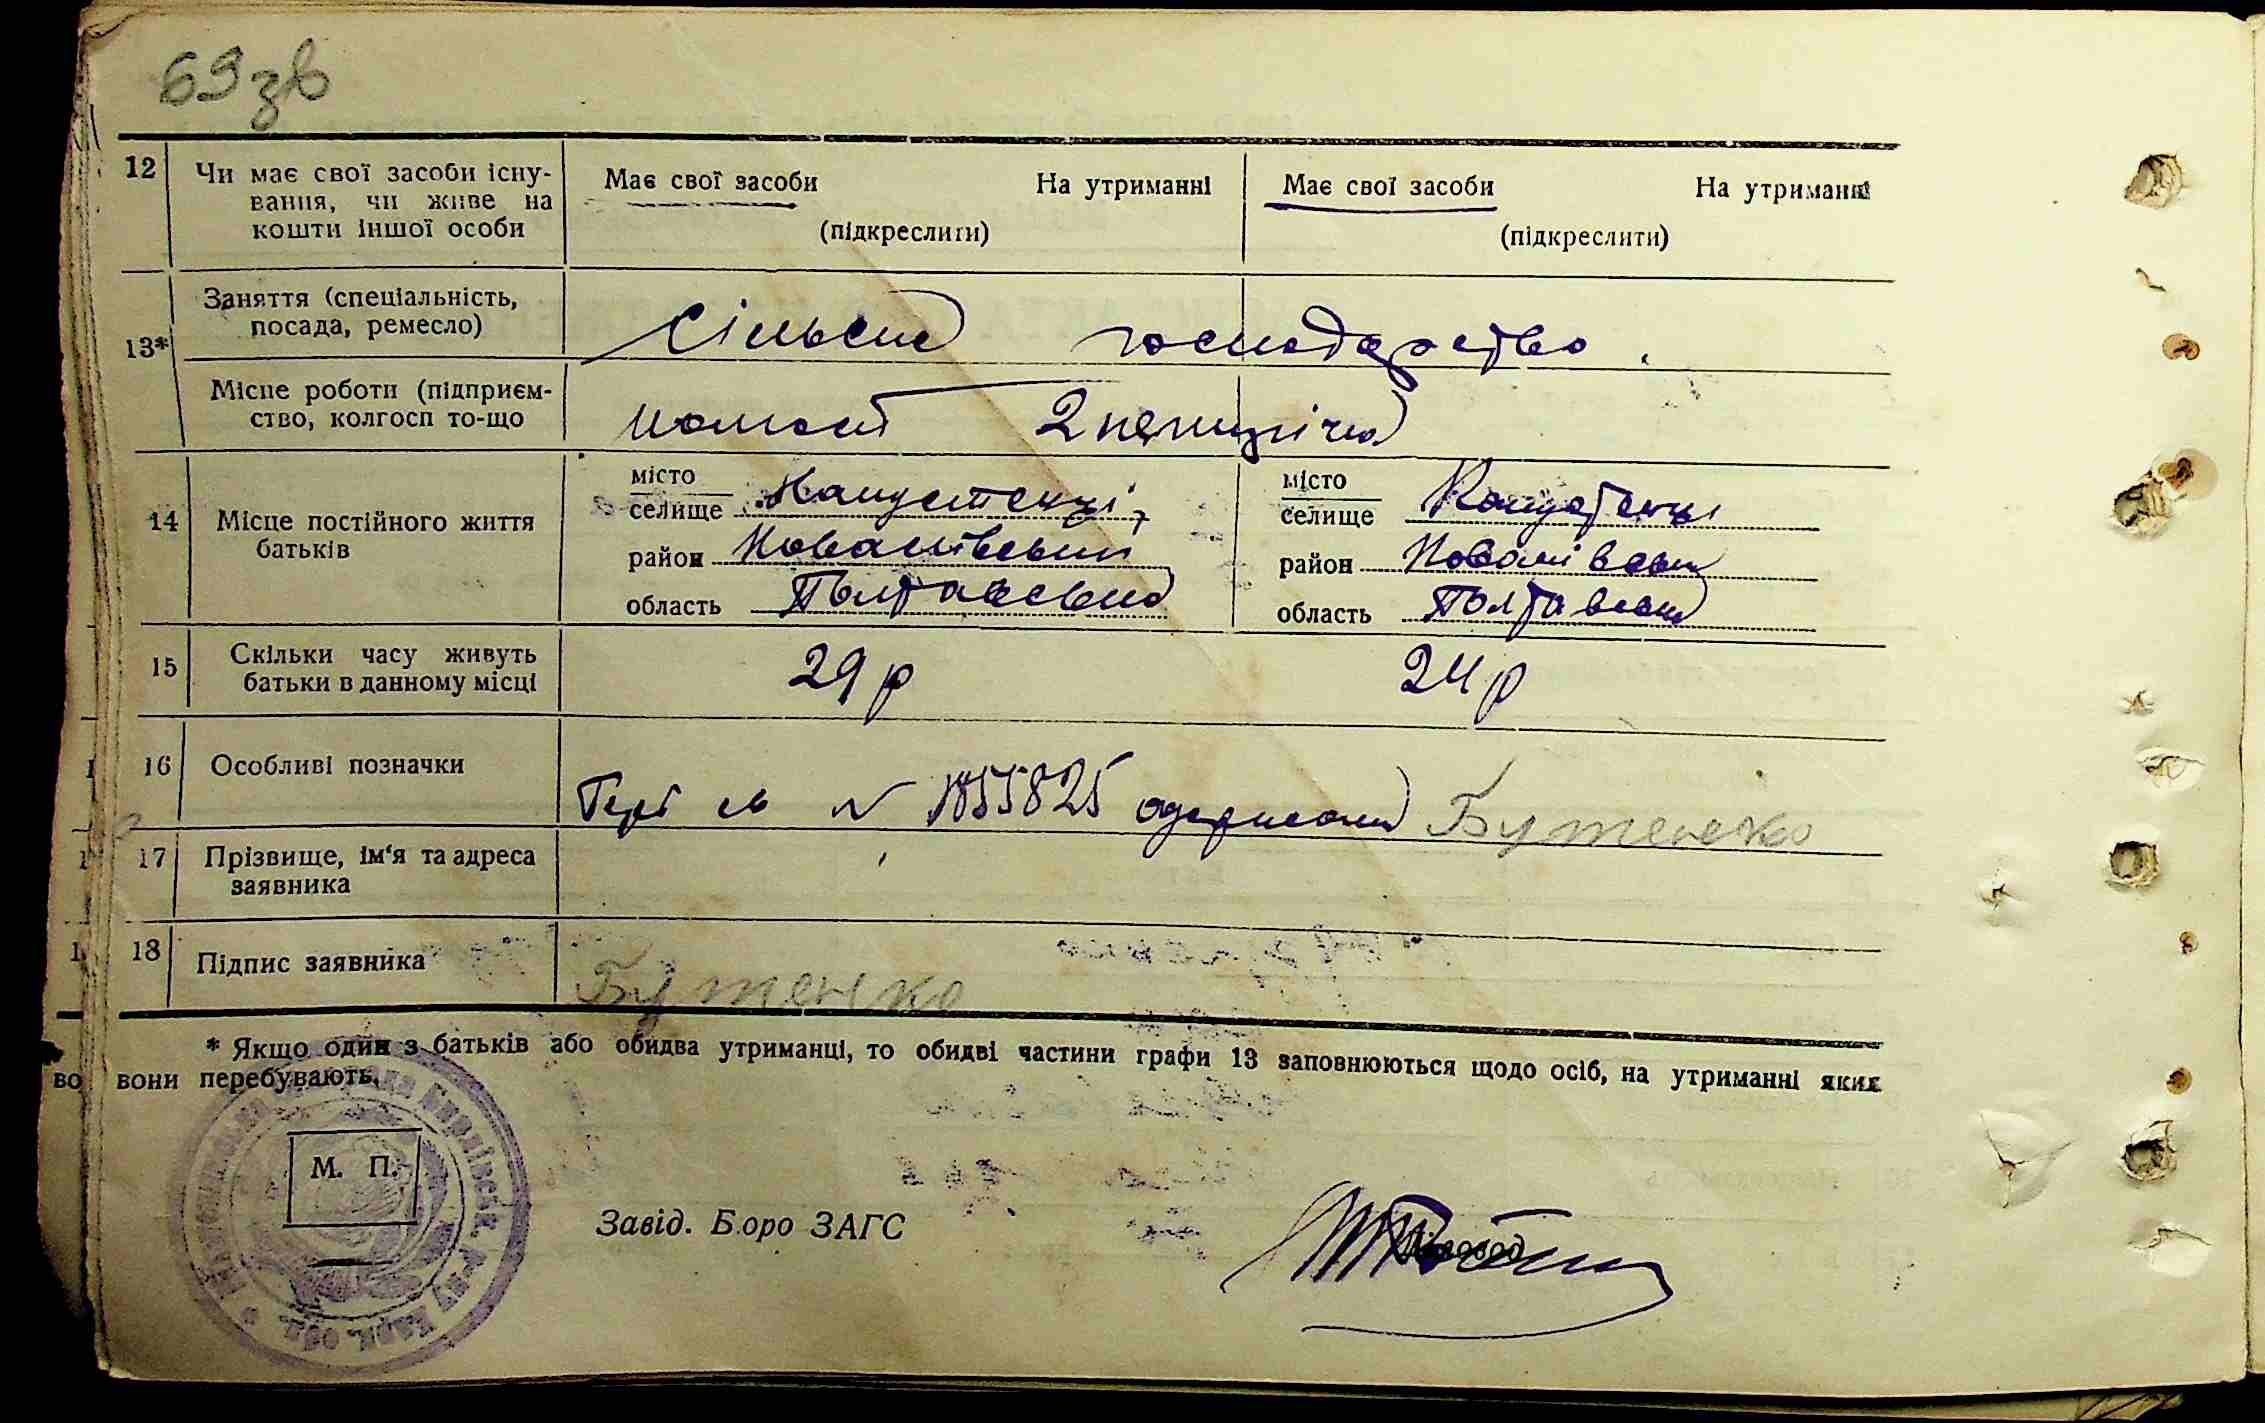 69зв
12 Чи має свої засоби існу-
вання, чи живе на
кошти іншої особи
Має свої засоби На утриманні
(підкреслити)
Має свої засоби На утриманні
(підкреслити)
13*
Заняття (спеціальність,
посада, ремесло)
Сільське господарство.
Місце роботи (підприєм-
ство, колгосп то-що
14 Місце постійного життя
батьків
місто
селище Капустенці,
район
область Полтавська
місто
селище Капустенці
район
область Полтавськ
15 Скільки часу живуть
батьки в данному місці
29 р
24 р
16 Особливі позначки
№ 1855825 одержала Бутенко
17 Прізвище, ім'я та адреса
заявника
18 Підпис заявника
Бутенко
* Якщо один з батьків або обидва утриманці, то обидві частини графи 13 заповнюються щодо осіб, на утриманні яких
вони перебувають.
М. П.
Завід. Бюро ЗАГС